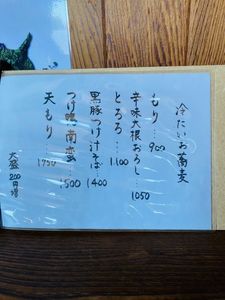 冷たいお蕎麦
もり…900
辛味大根おろし…1050
とろろ……1100
黒豚つけ汁そば 1400
つけ鴨南蛮……1500
天もり……1750
大盛200円増